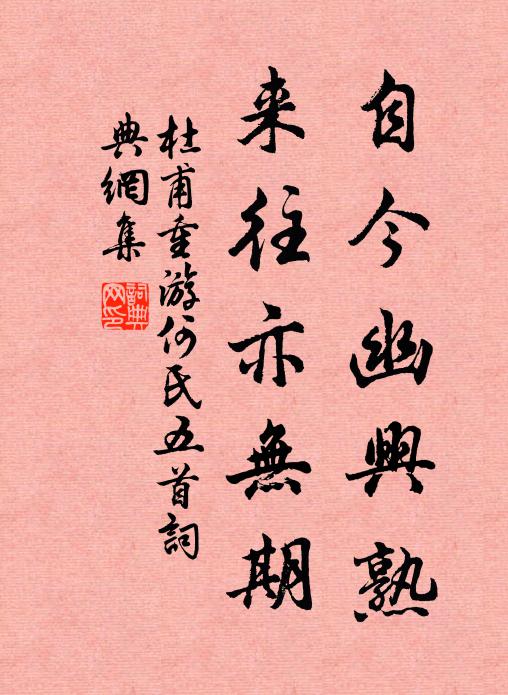 自今幽興熟
来往亦無期
杜甫重游何氏五首詞
典網集
詞典
网印